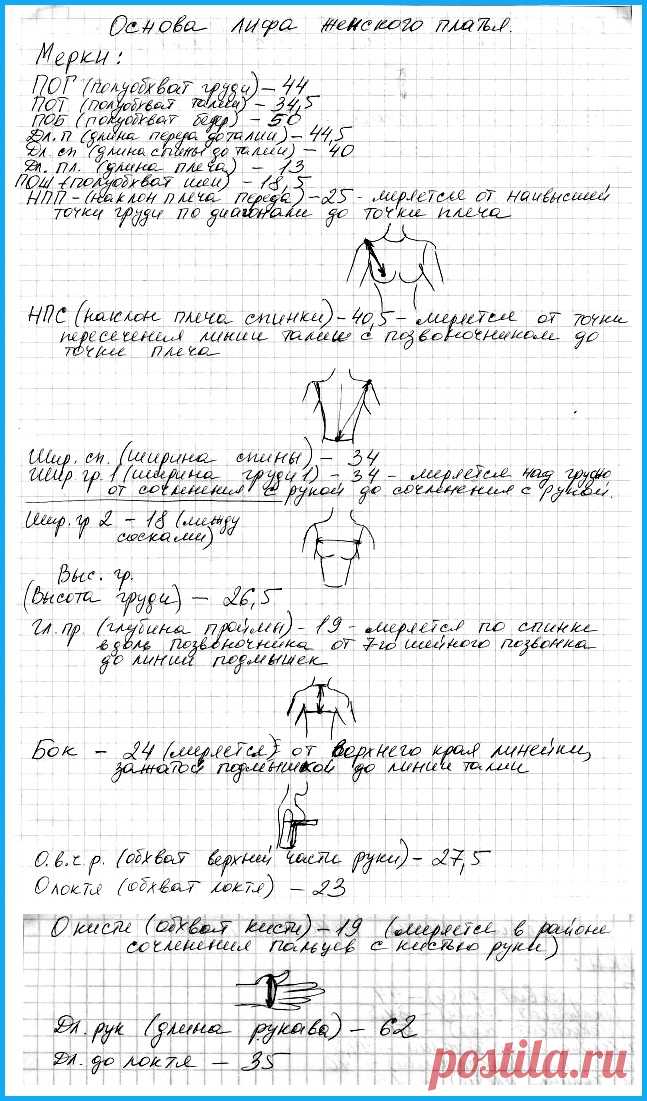 Основа лифа женского платья.
Мерки:
ПОГ (полуобхват груди) – 44
ПОТ (полуобхват талии) – 34,5
ПОБ (полуобхват бедер) – 50
Дл. п (длина переда до талии) – 44,5
Дл. сп (длина спины до талии) – 40
Дл. пл. (длина плеча) – 13
ПОШ (полуобхват шеи) – 18,5
НПП – (наклон плеча переда) – 25 – меряется от наивысшей
точки груди по диагонали до точки плеча
НПС (наклон плеча спинки) – 40,5 – меряется от точки
пересечения линии талии с позвоночником до
точки плеча
Шир. сп. (ширина спины) – 34
Шир. гр. 1 (ширина груди 1) – 34 – меряется над грудью
от сочленения с рукой до сочленения с рукой.
Шир. гр 2 – 18 (между
сосками)
Выс. гр.
(Высота груди) – 26,5
Гл. пр. (глубина проймы) – 19 – меряется по спинке
вдоль позвоночника от 7-го шейного позвонка
до линии подмышек
Бок – 24 (меряется) от верхнего края линейки,
зажатой подмышкой до линии талии
О.в.ч.р. (обхват верхней части руки) – 27,5
О локтя (обхват локтя) – 23
О кисти (обхват кисти) – 19 (меряется в районе
сочленения пальцев с кистью руки)
Дл. рук (длина рукава) – 62
Дл. до локтя – 35
postila.ru